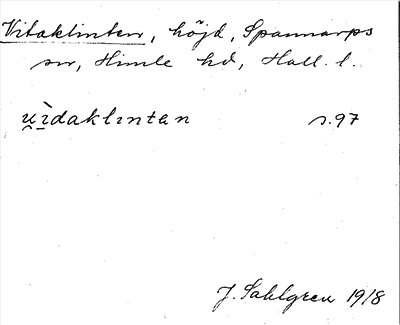 Vitaklinten, höjd, Spannarps
sn, Himle hd, Hall. l.
u̯ìdaklıntan s.97
J. Sahlgren 1918